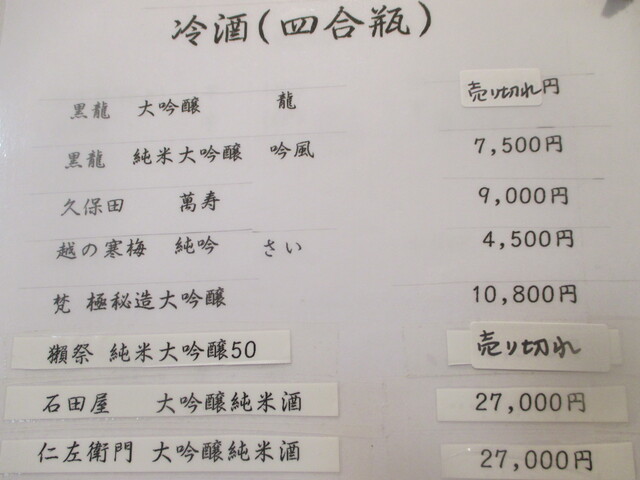 冷酒(四合瓶)
黒龍 大吟醸 龍 売り切れ円
黒龍 純米大吟醸 吟風 7,500円
久保田 萬寿 9,000円
越の寒梅 純吟 さい 4,500円
梵 極秘造大吟醸 10,800円
獺祭 純米大吟醸50 売り切れ
石田屋 大吟醸純米酒 27,000円
仁左衛門 大吟醸純米酒 27,000円